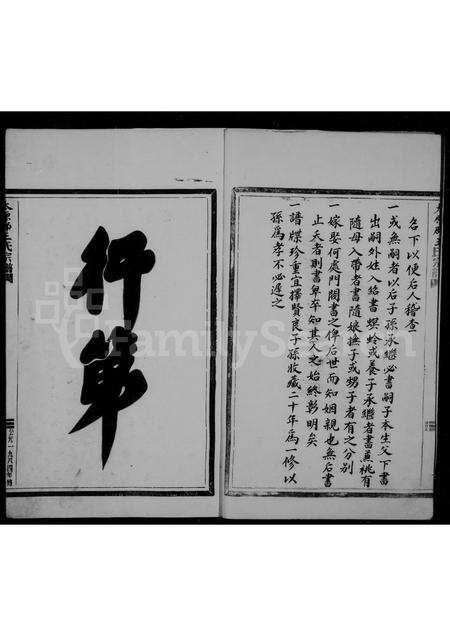 名下以便后人稽查
一或無嗣者以后子孫承繼必書嗣子本生父下書
出嗣外姓入紹書螟蛉或養子承繼者書兼桃有
隨母入帶者書隨娘撫子或甥子者有之分別
一嫁娶何處門閥書之俾后世而知姻親也無后書
止夭者則書卑卒知其人之始終彰明矣
一譜牒珍重宜擇賢良子孫收藏二十年為一修以
孫為孝不必遲之
行第
FamilySearch